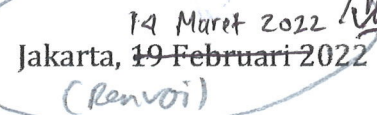 14 Maret 2022
Jakarta, 19 Februari 2022
(Renvoi)